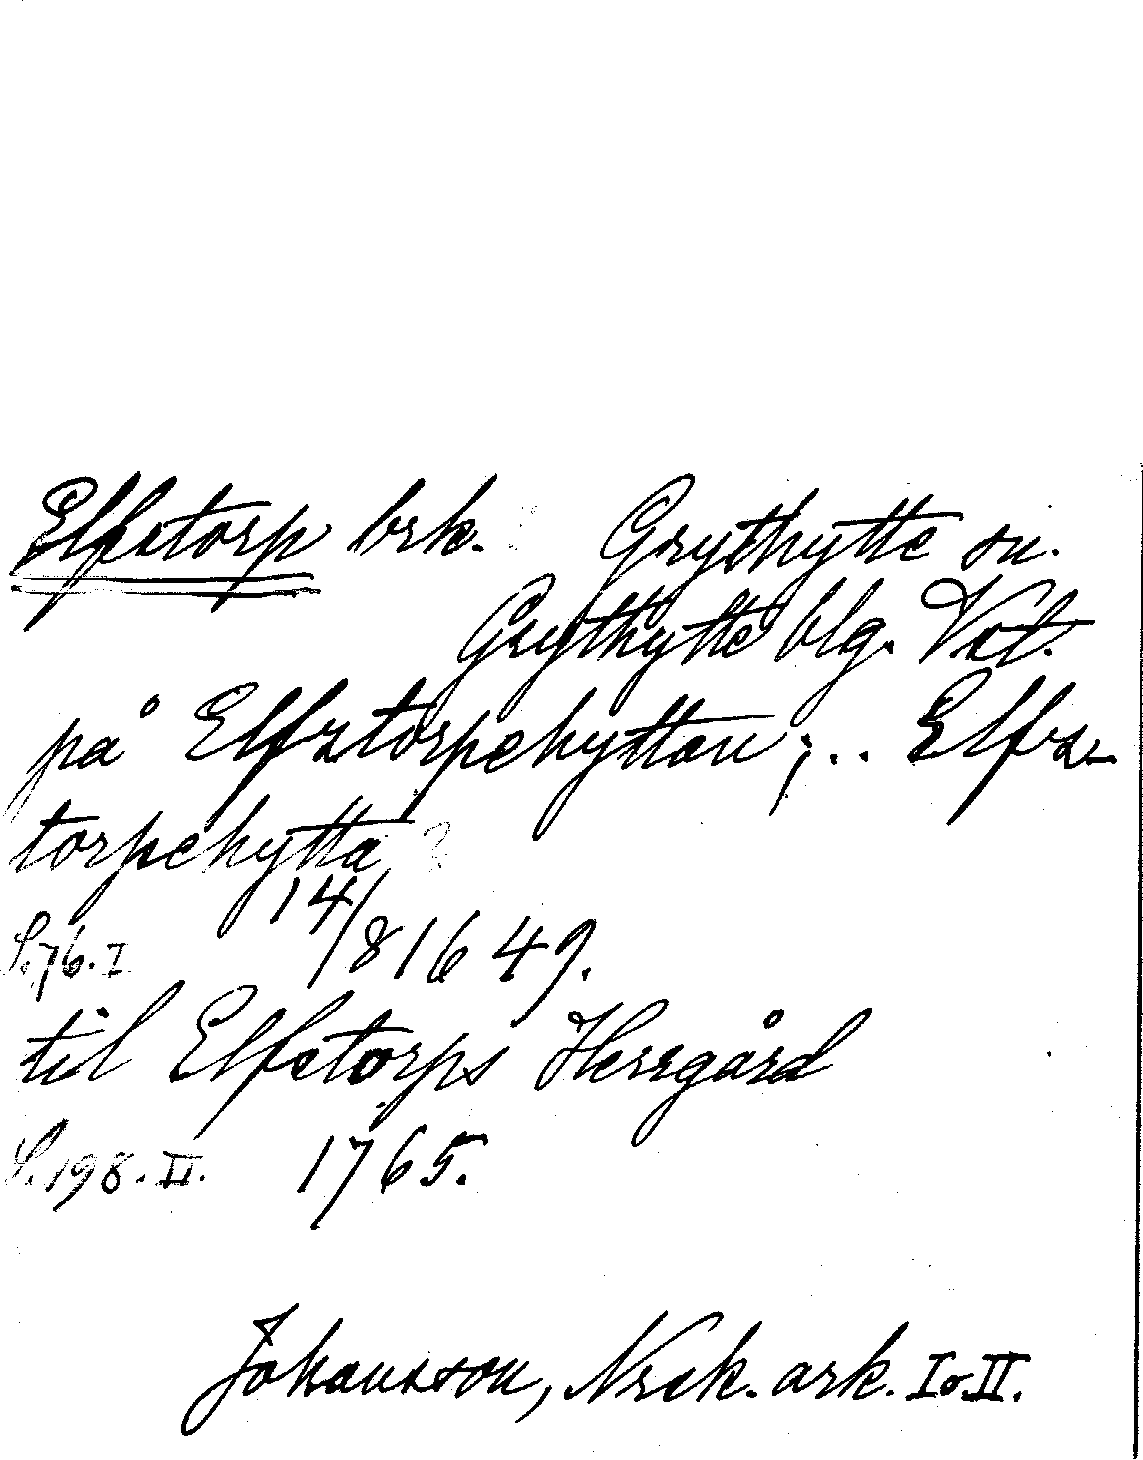 Elfstorp brk. Grythytte sn.
Grythytte blg. Vstl.
på Elfzstorpehyttan; .. Elfz-
torpehytta
14/8 1649.
S. 76. I
til Elfstorps Herrgård
S. 198. II. 1765.
Johansson, Norek. ark. I o. II.